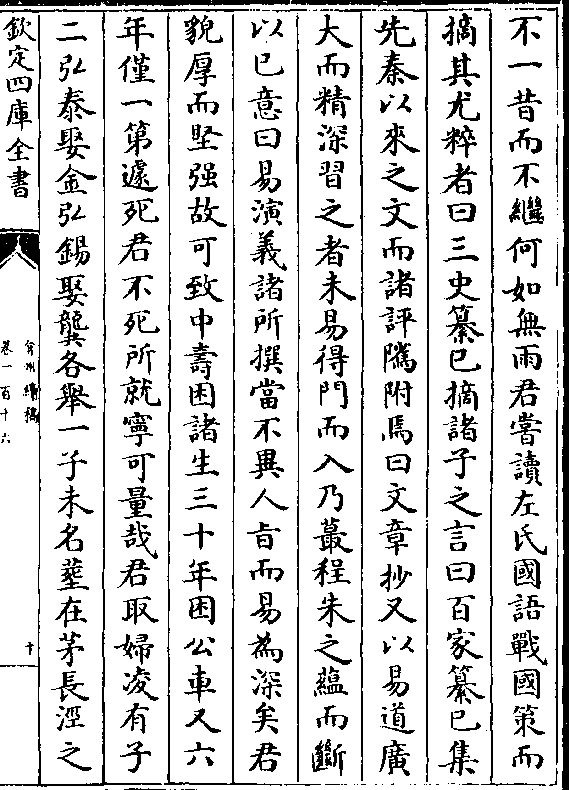 不一昔而不繼何如無雨君嘗讀左氏國語戰國策而
摘其尤粹者曰三史纂已摘諸子之言曰百家纂已集
先秦以來之文而諸評隲附焉曰文章抄又以易道廣
大而精深習之者未易得門而入乃蕞程朱之蘊而斷
以已意曰易演義諸所撰當不異人旨而易為深矣君
貌厚而堅强故可致中壽困諸生三十年困公車又六
年僅一第遽死君不死所就寧可量哉君取婦凌有子
二弘泰娶金弘錫娶龔各舉一子未名塟在茅長涇之
欽定四庫全書
弇州續稿
卷一百十六
十